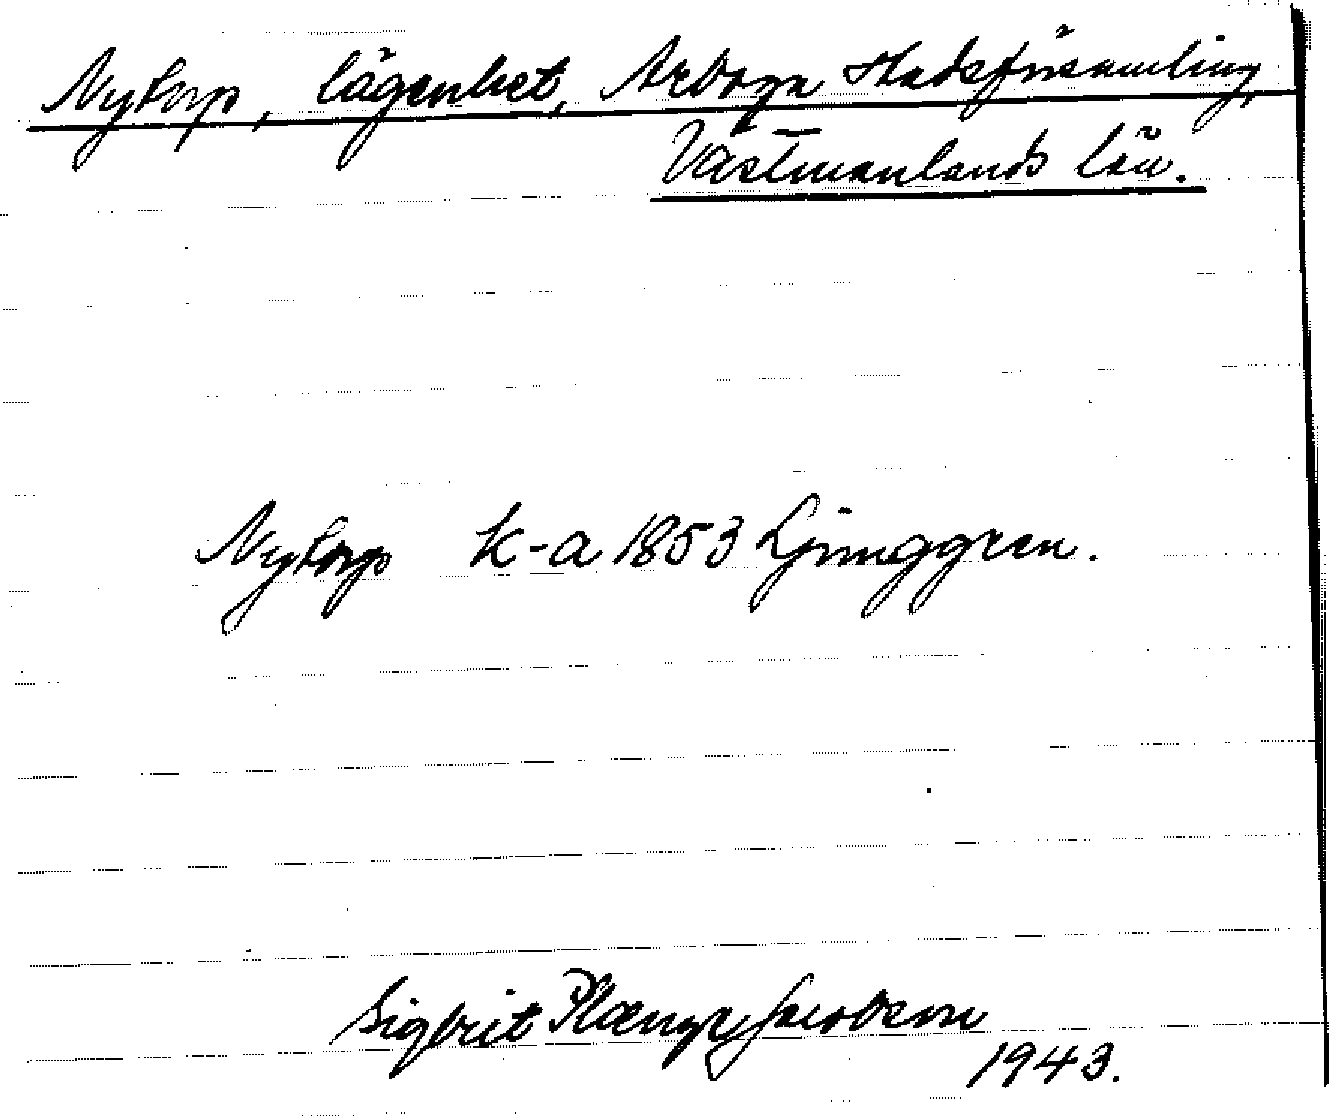 Nytorp, lägenhet, Arboga stadsförsamling,
Västmanlands län.
Nytorp k-a 1853 Ljunggren.
Sigbrit Plænge Jacobson
1943.